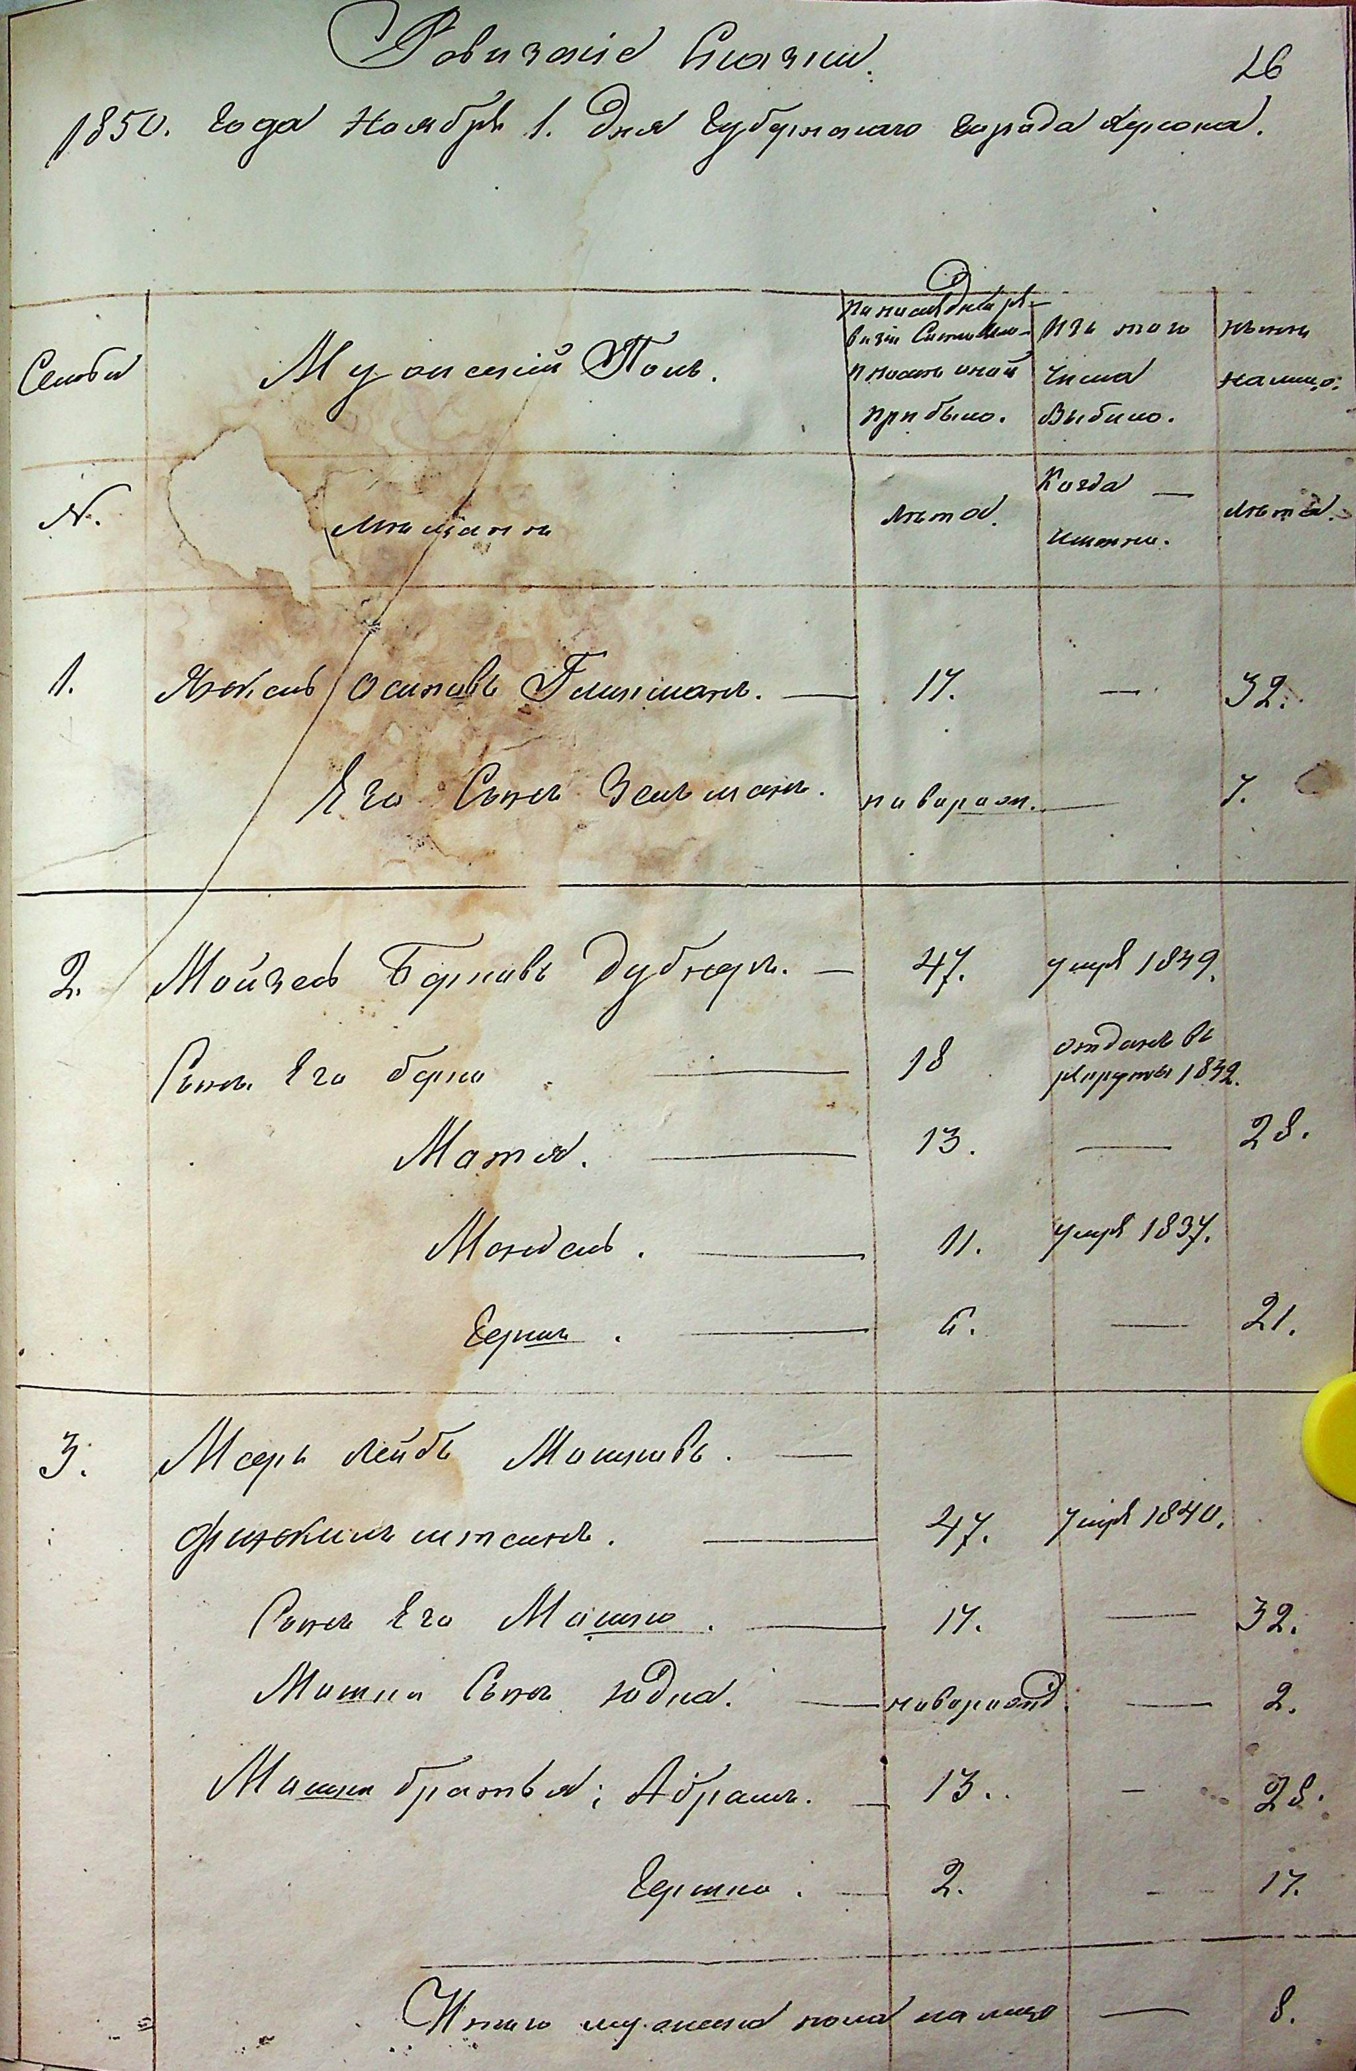 Ревизскіе Сказки.
26
1850. Года Ноября 1. Дня Губернскаго города Херсона.
Семьи
Мужескій Полъ.
По последней ре-
визіи Состояло
и после оной
прибыло.
Изъ того
Числа
Выбыло.
Ныне
на лицо.
N.
Мещане
Лета.
Когда —
именно.
Лета.
1. Янкель Осиповъ Глинманъ. — 17. — 32.
Его Сынъ Зельманъ. новорож. — 7.
2. Мойзесъ Берковъ Дубнеръ. — 47. умре 1849.
Сынъ Его Берко — 18 отданъ въ
рекруты 1832.
Мотя. — 13. — 28.
Мендель. — 11. умре 1837.
Гершъ. — 6. — 21.
3. Мееръ Лейбъ Мошковъ. —
Финкильштейнъ. — 47. умре 1840.
Сынъ Его Мошко. — 17. — 32.
Мошки Сынъ Юдка. — новорожд. — 2.
Мошки братья: Абрамъ. — 13. — 28.
Гершко. — 2. — 17.
Итого мужеска пола на лицо — 8.